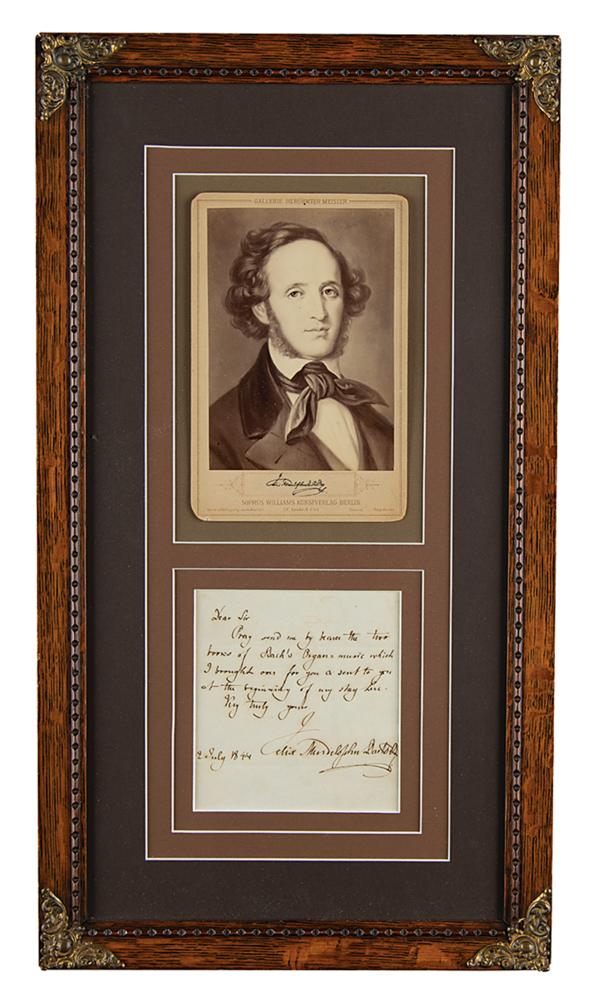 GALLERIE BERÜHMTER MEISTER
Felix Mendelssohn Bartholdy
SOPHUS WILLIAMS KUNSTVERLAG BERLIN
Dear Sir
Pray send me by bearer the two
books of Bach's Organ=music which
I brought over for you & sent to you
at the beginning of my stay here.
Very truly yours
Felix Mendelssohn Bartholdy
2 July 1844